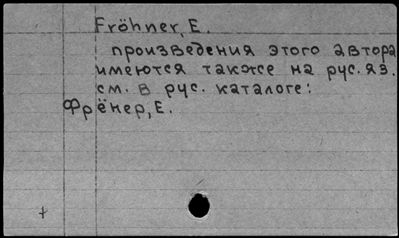 Fröhner, E.
произведения этого автора
имеются также на рус. яз.
см. в рус. каталоге:
Фрёнер, Е.